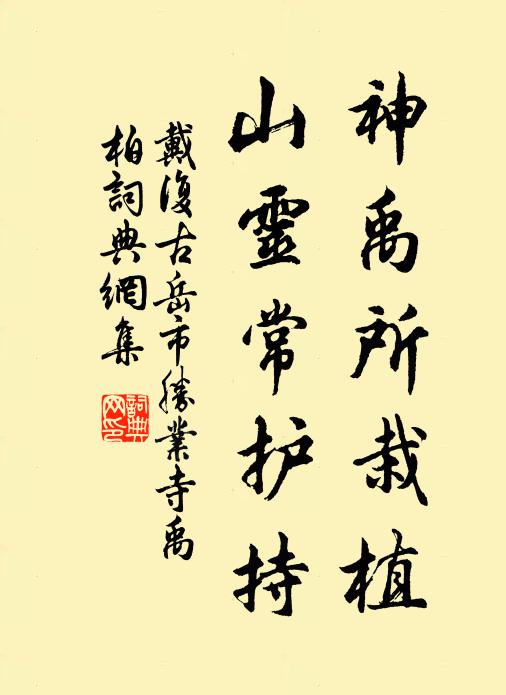 神禹所栽植
山靈常护持
戴復古岳市勝業寺禹
柏詞典網集
詞典
网印